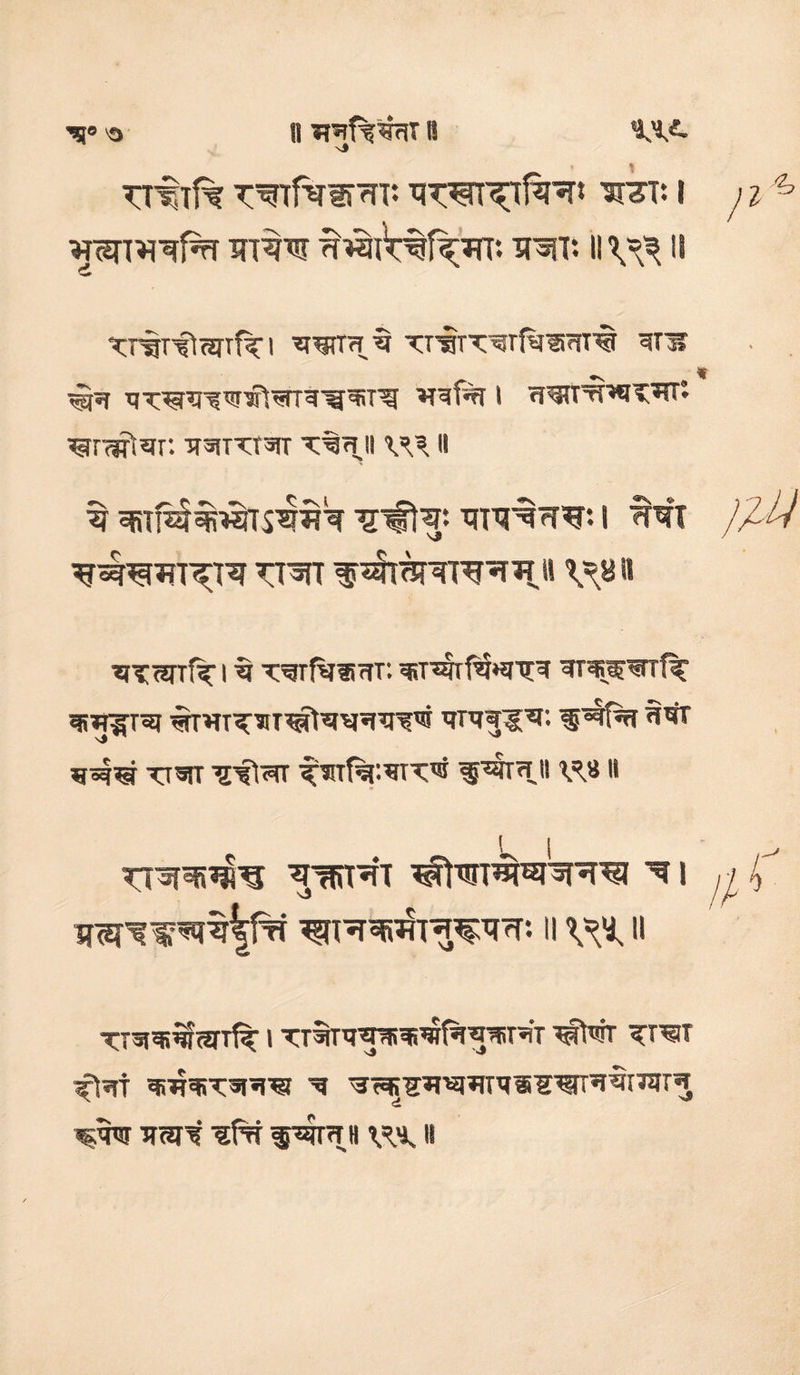 अ० ७ ॥ मनुसंहिता ॥ ५५९
राज्ञोहि रक्षाधिकृताः परस्वादायिनः शठाः ।
भृत्याभवन्ति प्रायेण तेभ्योरक्षेदिमाः प्रजाः ॥ १२३ ॥
राज्ञोहीत्यादि । यस्मात् ये राज्ञोरक्षाधिकृतास्ते बाहु
ल्येन परस्वग्रहणशीलावञ्चकाश्च भवन्ति । तस्मात्तेभ्यइमाः
स्वात्मीयाः प्रजाराजा रक्षेत् ॥ १२३ ॥
ये कार्य्यिकेभ्योऽर्थमेव गृह्णीयुः पापचेतसः । तेषां
सर्व्वस्वमादाय राजा कुर्य्यात्प्रवासनम् ॥ १२४ ॥
124
येइत्यादि । ये रक्षाधिकृताः कार्य्यार्थिभ्यएव वाक्छलादि
कमुद्भाव्य लोभादशास्त्रीयधनग्रहणं पापबुद्धयः कुर्व्वन्ति तेषां
सर्व्वस्वं राजा गृहीत्वा देशान्निःसारणं कुर्य्यात् ॥ १२४ ॥
राजकर्म्मसु युक्तानां स्त्रीणाम्प्रेष्यजनस्य च ।
प्रत्यहं कल्पयेद्वृत्तिं स्थानकर्म्मानुरूपतः ॥ १२५ ॥
राजकर्म्मेत्यादि । राजोपयुक्तकर्म्मनियुक्तानां स्त्रीणां दास्या
दीनां कर्म्मकरजनस्य च उत्कृष्टमध्यमापकृष्टस्थानयोग्यानु
रूपेण प्रत्यहं वृत्तिं कुर्य्यात् ॥ १२५ ॥